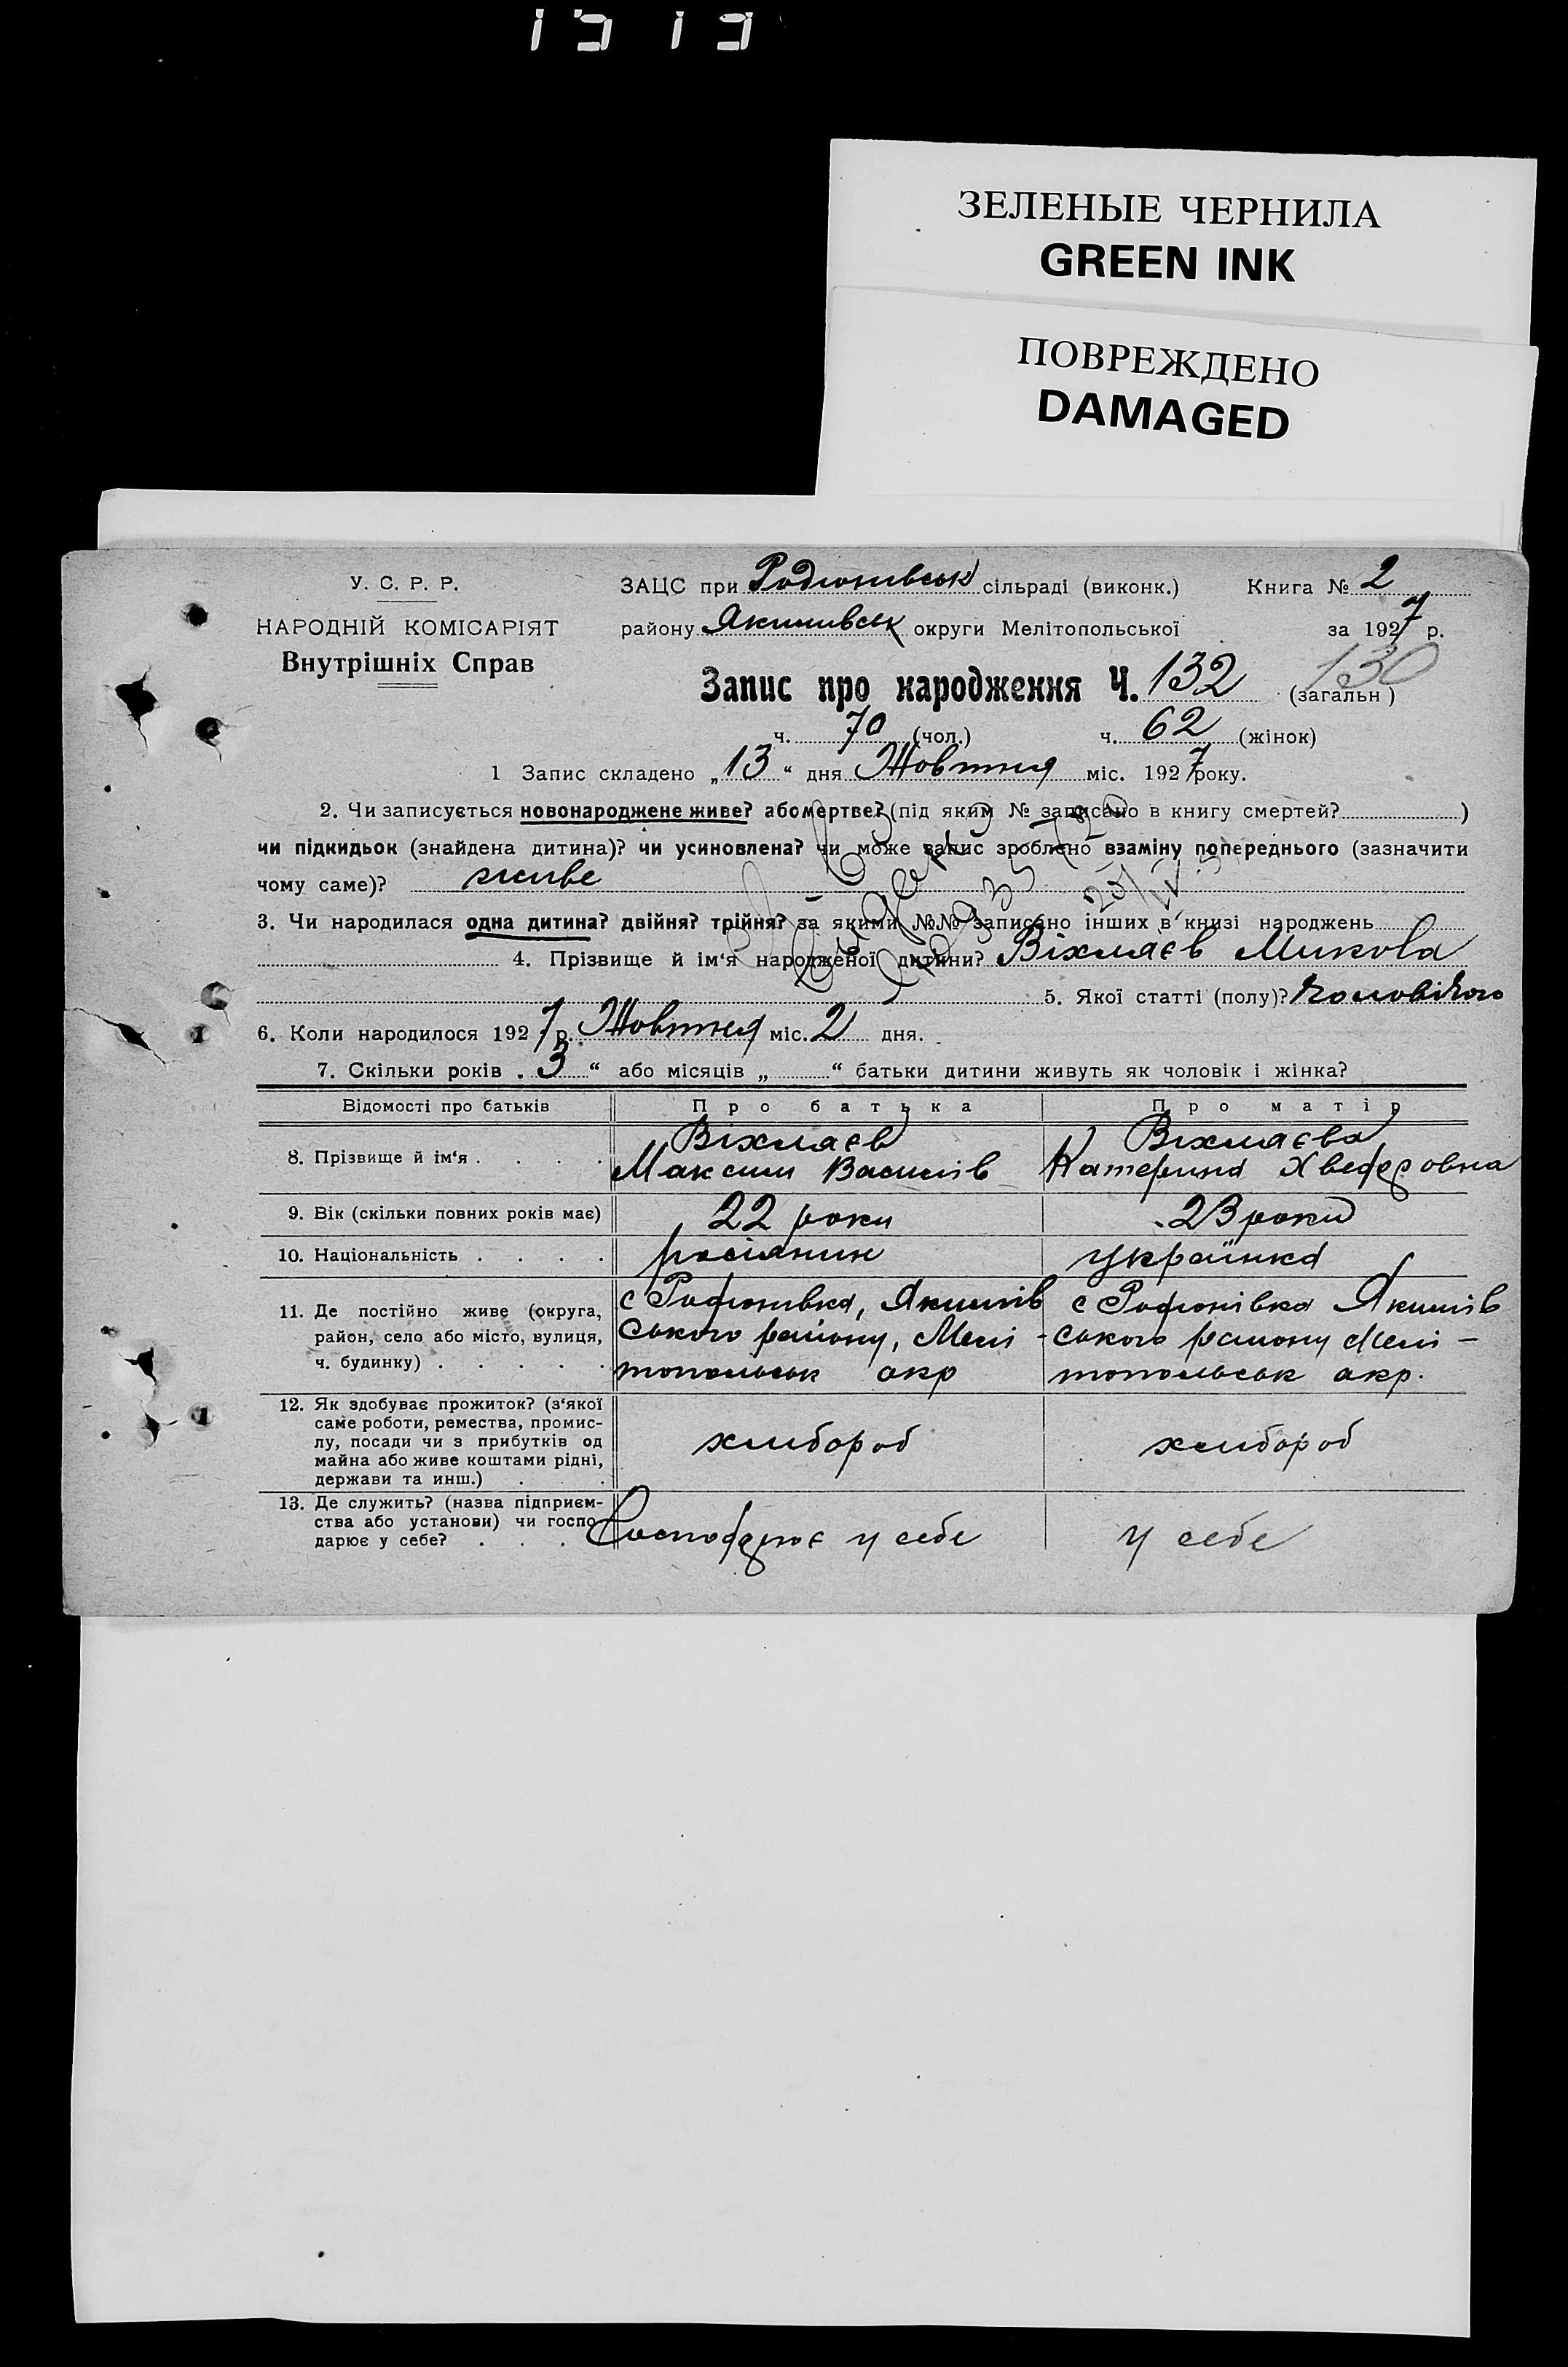 ЗЕЛЕНЫЕ ЧЕРНИЛА
GREEN INK
ПОВРЕЖДЕНО
DAMAGED
У. С. Р. Р.
НАРОДНІЙ КОМІСАРІЯТ
Внутрішніх Справ
ЗАЦС при Родионивськ сільраді (виконк.) Книга № 2
району Якимивськ округи Мелітопольської за 1927 р.
Запис про народження Ч. 132 (загальн) 130
ч. 70 (чол.) ч. 62 (жінок)
1 Запис складено „13“ дня Жовтня міс. 1927 року.
2. Чи записується новонароджене живе? або мертве? (під яким № записано в книгу смертей? )
чи підкидьок (знайдена дитина)? чи усиновлена? чи може запис зроблено взаміну попереднього (зазначити
чому саме)? живе
3. Чи народилася одна дитина? двійня? трійня? за якими №№ записано інших в книзі народжень
4. Прізвище й ім‘я народженої дитини? Віхляєв Микола
5. Якої статті (полу)? Чоловічого
6. Коли народилося 1927 р. Жовтня міс. 2 дня.
7. Скільки років „3“ або місяців „ “ батьки дитини живуть як чоловік і жінка?
Відомості про батьків Про батька Про матір
8. Прізвище й ім‘я . . . . Віхляєв Віхляєва
Максим Василів Катерина Хведоровна
9. Вік (скільки повних років має) 22 роки 23 роки
10. Національність . . . . росіянин українка
11. Де постійно живе (округа,
район, село або місто, вулиця,
ч. будинку) . . . . .
с Родионивка, Якимів
ського району, Мелі-
топольськ окр
с Родионівка Якимів
ського району Мелі-
топольськ окр.
12. Як здобуває прожиток? (з‘якої
саме роботи, ремества, промис-
лу, посади чи з прибутків од
майна або живе коштами рідні,
держави та инш.) . . .
хлибороб хлибороб
13. Де служить? (назва підприєм-
ства або установи) чи госпо-
дарює у себе? . . .
Господарює у себе у себе